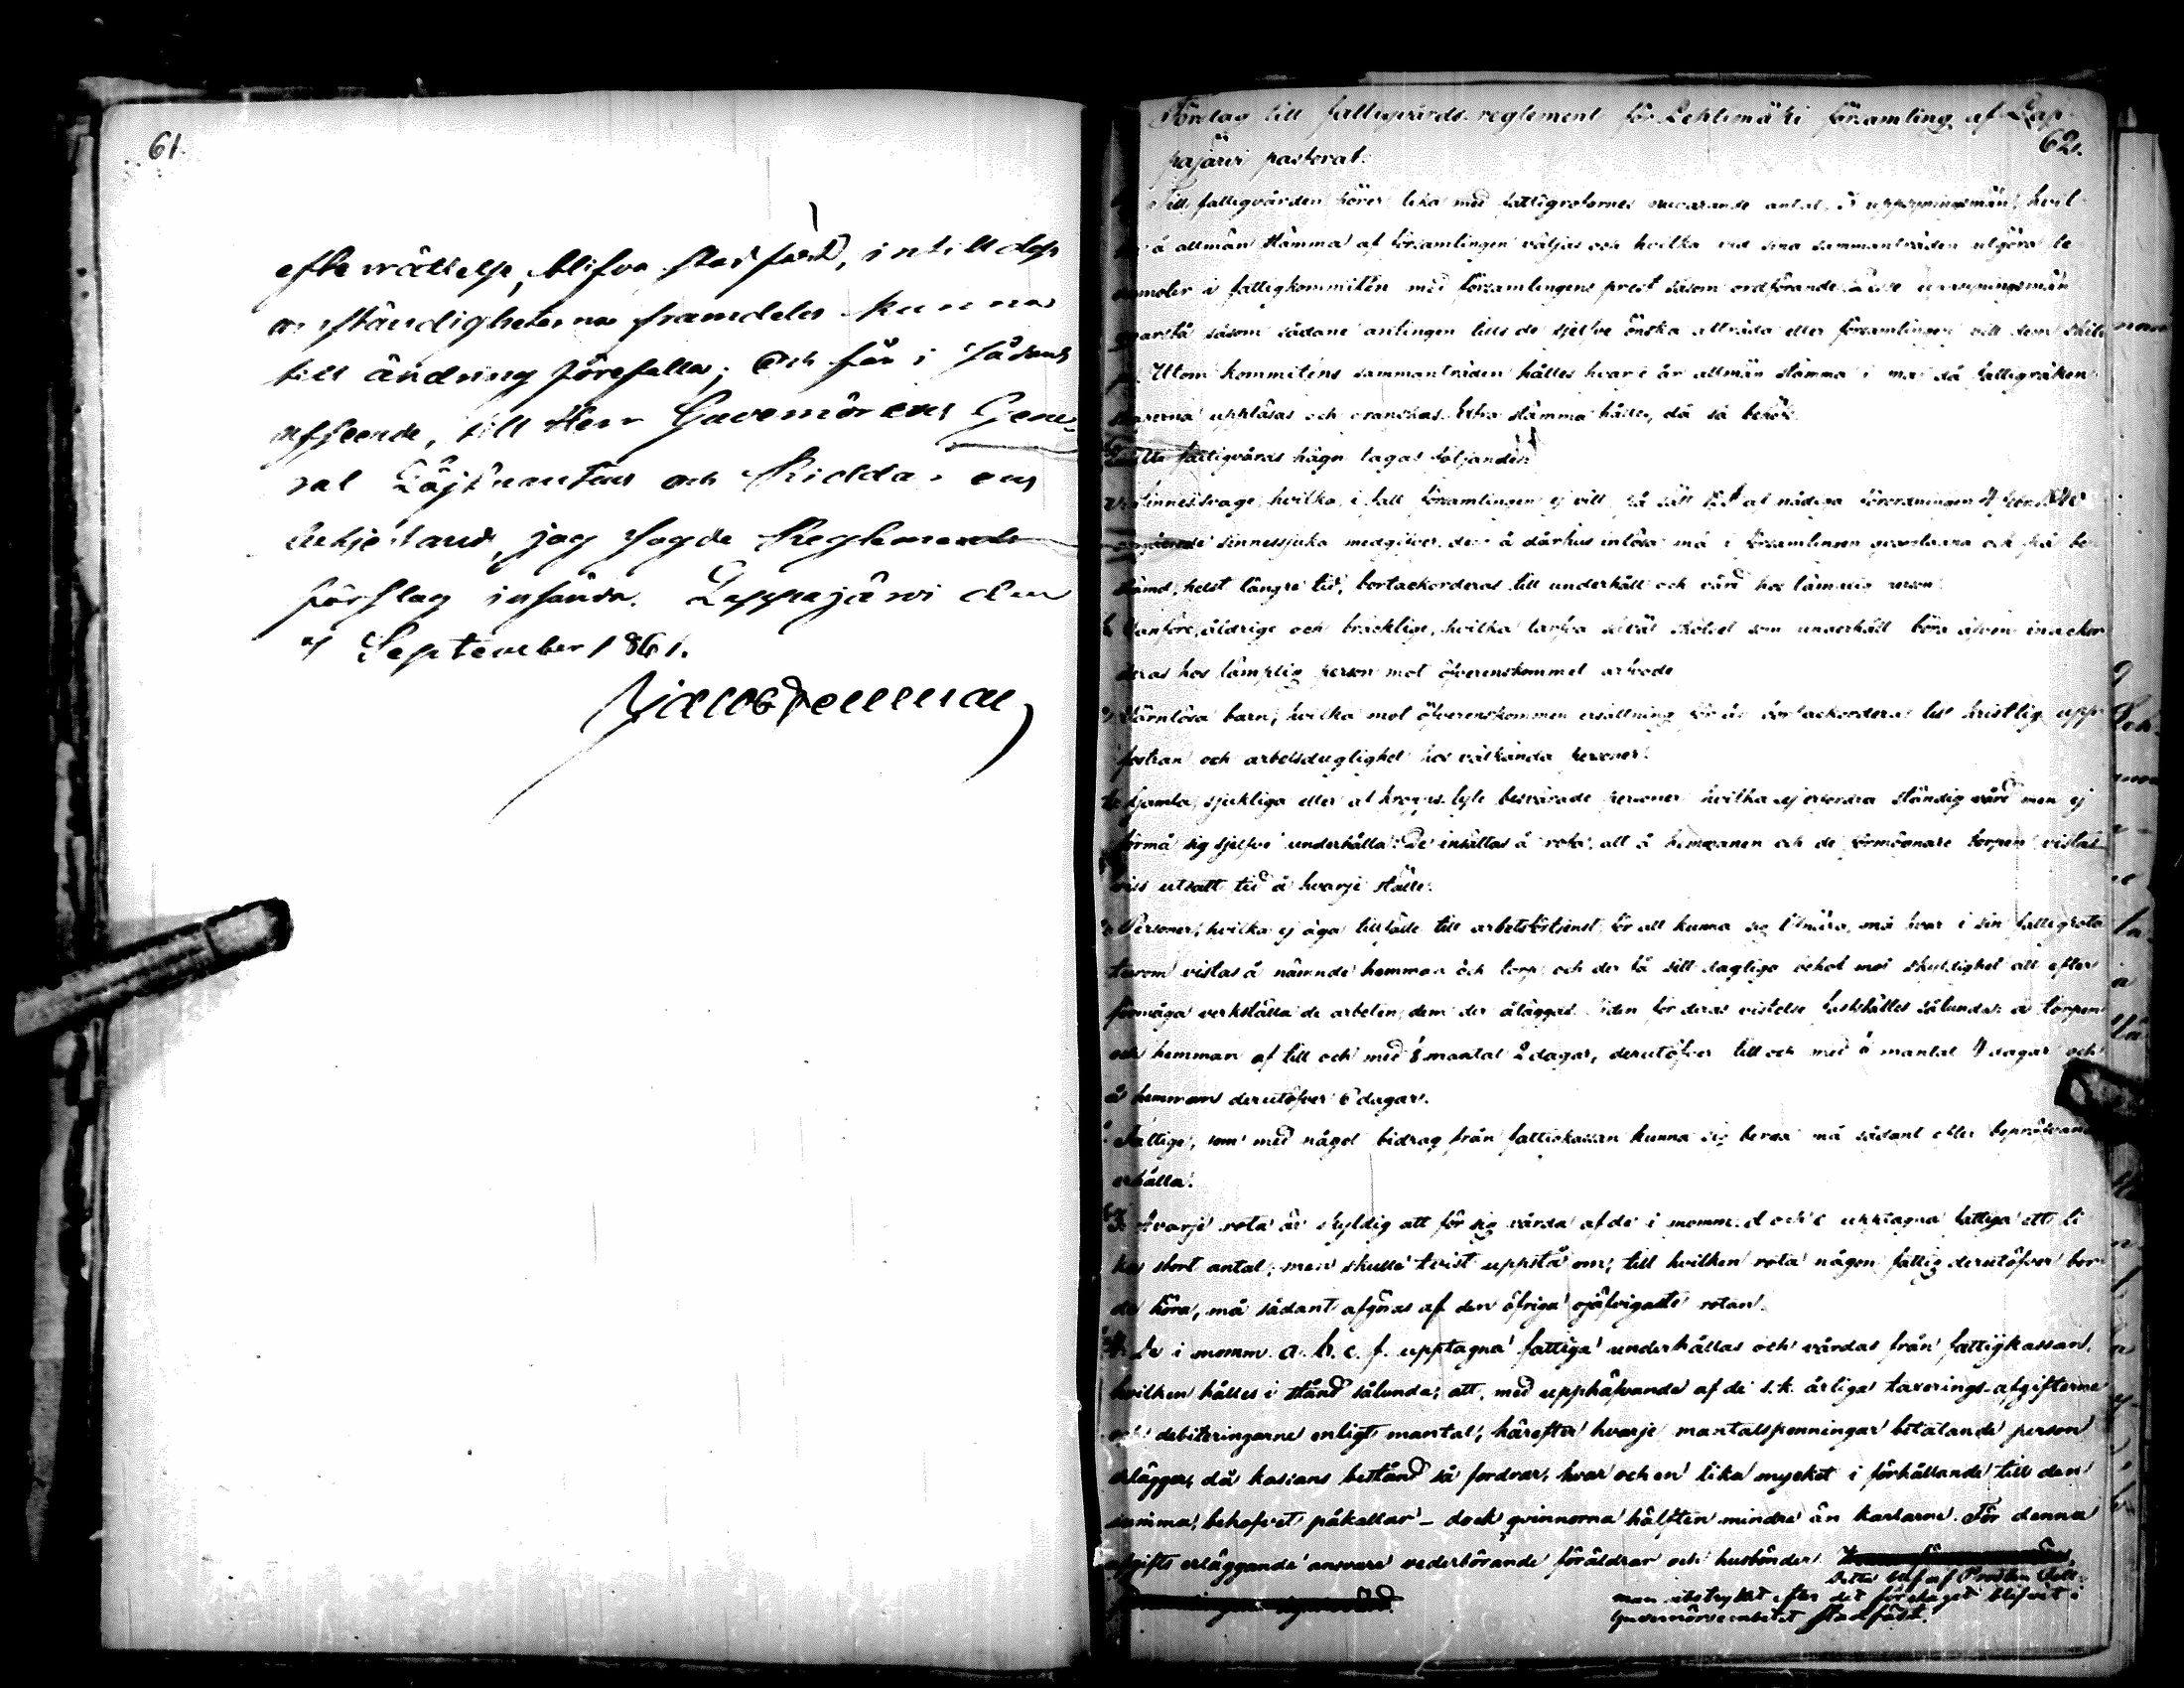 61.
efterrättelse, blifva stadfäst, intill dess
omständigheterna framdeles kunna
till ändring förefalla; och får i sådant
afseende, till Herr Guvernörens Gene-
ral Löjtnantens och Riddarens
jag sagde Reglemente
förslag insända. Lappajärvi den
4 September 1861.
Förslag till fattigvårds-reglement för Lehtimäki församling af Lap-
62.
pajärvi pastorat.
Till fattigvården hörer lika med fattigrotornes nuvarande antal, uppsyningsmän, hvil-
ka å allmän stämma af församlingen väljas och hvilka vid sina sammanträden utgöra le-
damöter i fattigkommitén med församlingens prest såsom ordförande. Desse uppsyningsmän
qvarstå såsom sådane antingen tills de sjelfve önska afträda eller församlingen vill dem skilja
Utom kommiténs sammanträden hålles hvarje år allmän stämma i maj då fattigräken-
skaperna uppläsas och granskas. Extra stämma hålles, då så behöfs.
Under fattigvårds hägn tagas följande:
Sinnessvage, hvilka, i fall församlingen ej vill, på sätt nådiga förordningen
angående sinnessjuka medgifver, dem å dårhus inlösa må i församlingen qvarstanna och på be-
stämd, helst längre tid, bortackorderas till underhåll och vård hos lämplig person.
b. Vanföre, åldrige och bräcklige, hvilka tarfva såväl skötsel som underhåll böra äfven inackor-
deras hos lämplig person mot öfverenskommet arfvode
c. Värnlösa barn, hvilka mot öfverenskommen ersättning för år bortackorderas till kristlig upp-
fostran och arbetsduglighet hos välkända personer.
d. Gamla, sjukliga eller af kropps lyte besvärade personer hvilka ej erfordra ständig vård men ej
förmå sig sjelfve underhålla. De insättas å rota, att å hemmanen och de förmögnare torpen vistas
viss utsatt tid å hvarje ställe.
e. Personer, hvilka ej äga tillfälle till arbetsförtjenst för att kunna sig lifnära, må hvar i sin fattigrota
äfven vistas å nämnde hemman och torp och der få sitt dagliga behof mot skyldighet att efter
förmåga verkställa de arbeten, dem der åläggas. Tiden för deras vistelse fastställes sålunda: å torpen
och hemman af till och med ⅛ mantal 2 dagar, derutöfver till och med mantal 4 dagar och
å hemman derutöfver 6 dagar.
f. Fattige, som med något bidrag från fattigkassan kunna sig berga må sådant efter bepröfvande
erhålla.
§ 3. Hvarje rota är skyldig att för sig vårda af de i momm. d och e upptagna fattiga ett li-
ka stort antal; men skulle tvist uppstå om, till hvilken rota någon fattig derutöfver bor-
de höra, må sådant afgöras af den öfriga ojäfvigaste rotan.
§ 4. De i momm. a. b. c. f. upptagna fattiga underhållas och vårdas från fattigkassan,
hvilken hålles i stånd sålunda, att, med upphäfvande af de s.k. årliga taxerings-afgifterna
och debiteringarne enligt mantal, härefter hvarje mantalspenningar betalande person
erlägger, då kassans bestånd så fordrar, hvar och en lika mycket i förhållande till den
summa, behofvet påkallar – dock qvinnorna hälften mindre än karlarne. För denna
afgifts erläggande ansvare vederbörande föräldrar och husbönder.
Detta blef af Prosten Fell-
man utstruket efter det förslaget blifvit i
Guvernörsembetet stadfäst.